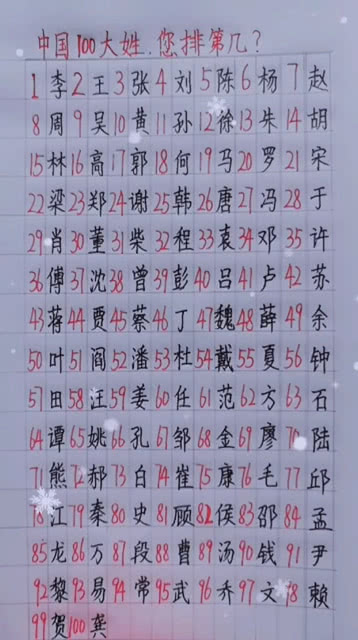 中国100大姓.您排第几?
1李2王3张4刘5陈6杨7赵
8周9吴10黄11孙12徐13朱14胡
15林16高17郭18何19马20罗21宋
22梁23郑24谢25韩26唐27冯28于
29肖30董31柴32程33袁34邓35许
36傅37沈38曾39彭40吕41卢42苏
43蒋44贾45蔡46丁47魏48薛49余
50叶51阎52潘53杜54戴55夏56钟
57田58汪59姜60任61范62方63石
64谭65姚66孔67邹68金69廖70陆
71熊72郝73白74崔75康76毛77邱
78江79秦80史81顾82侯83邵84孟
85龙86万87段88曹89汤90钱91尹
92黎93易94常95武96乔97文98赖
99贺100龚